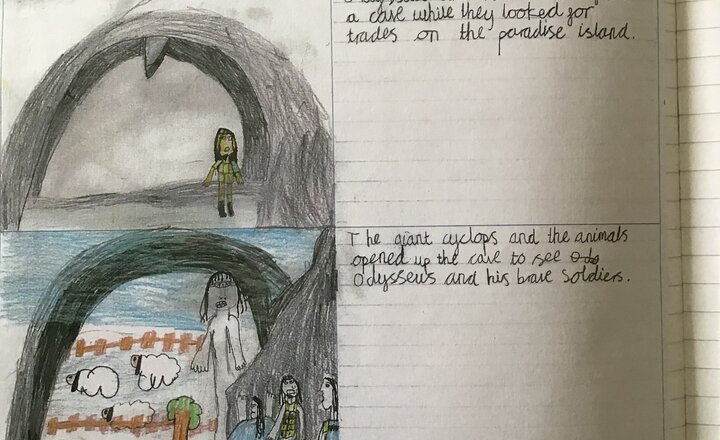 a cave while they looked for
trades on the paradise island.
The giant cyclops and the animals
opened up the cave to see
Odysseus and his brave soldiers.